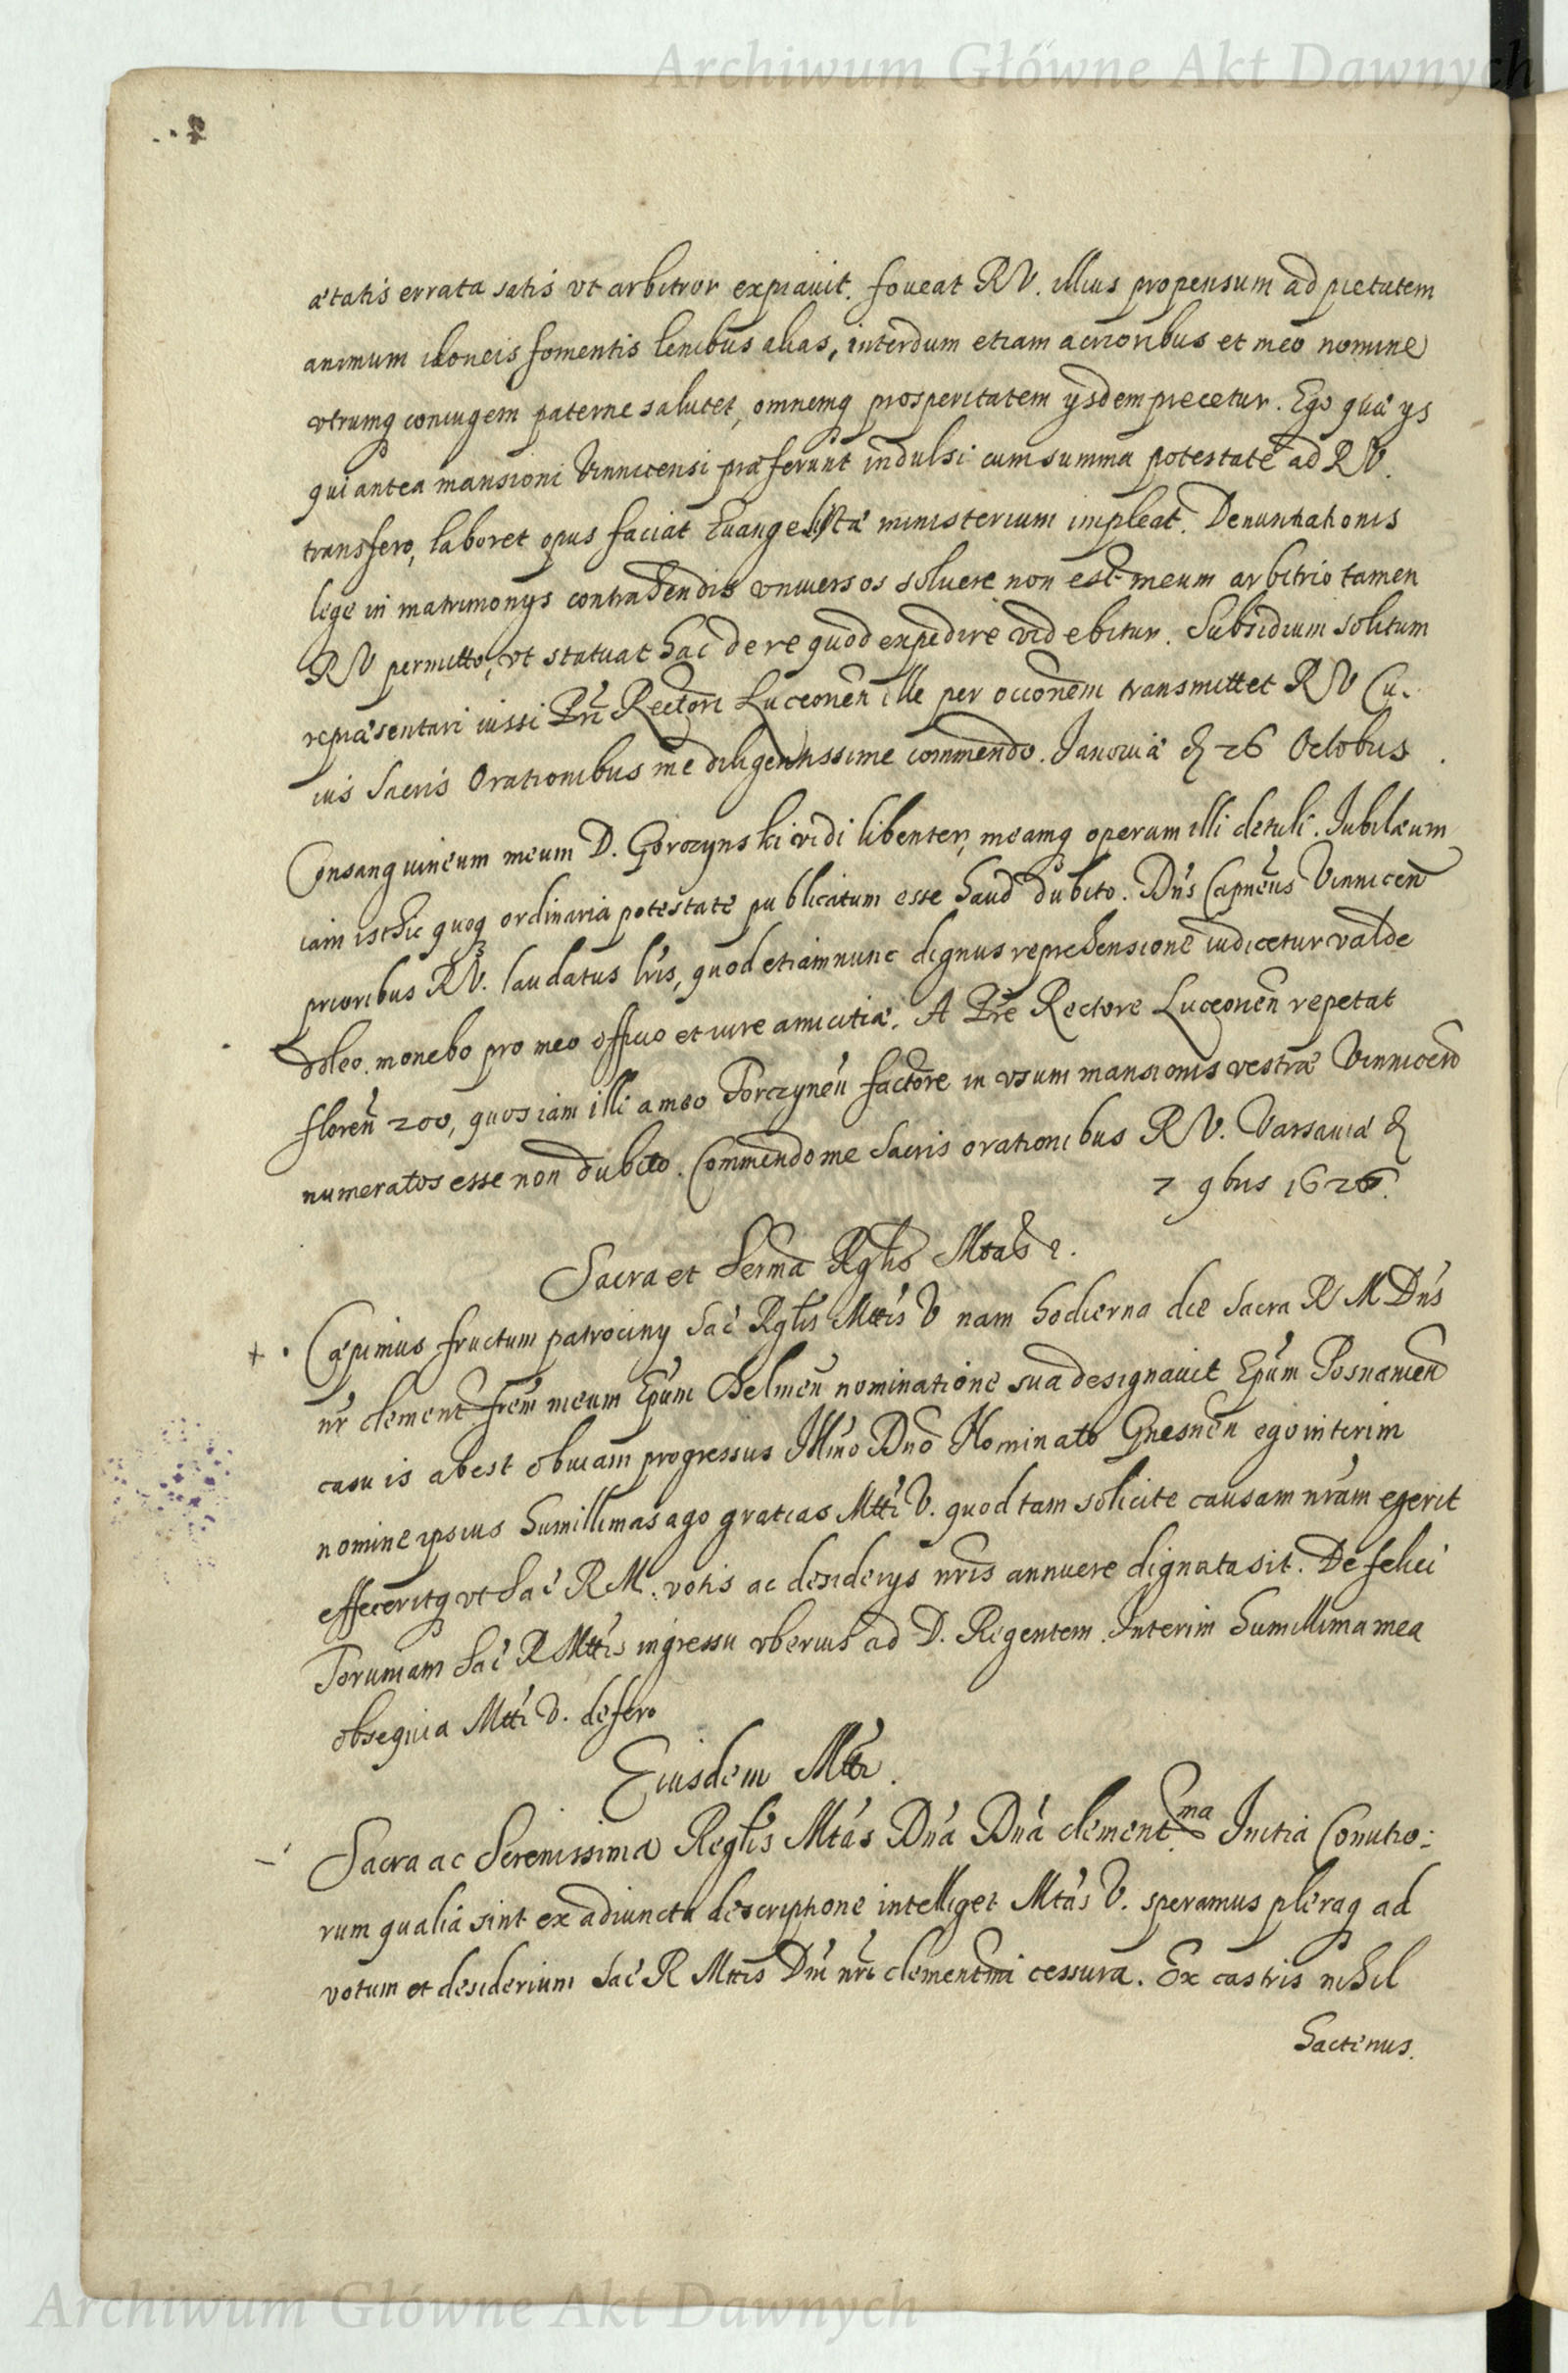 Archiwum Główne Akt Dawnych
ætatis errata satis vt arbitror expiauit. foueat RV. illius propensum ad pietatem
animum idoneis fomentis lenibus alias, interdum etiam acrioribus et meo nomine
vtrumq coniugem paterne salutet, omnemq prosperitatem ysdem precetur. Ego quæ ys
qui antea mansioni Vinnicensi præferunt indulsi cum summa potestate ad RV.
transfero, laboret opus faciat Euangelistæ ministerium impleat. Denuntiationis
lege in matrimonys contrahendis vniuersos soluere non est meum arbitrio tamen
RV permitto, vt statuat hac de re quod expedire videbitur. Subsidium solitum
repræsentari iussi Pri Rectori Luceorien ille per occonem transmittet RV Cu.
ius Sacris Orationibus me diligentissime commendo. Janouiæ d 26 Octobris
Consanguineum meum D. Gorczynski vidi libenter, meamq operam illi detuli. Iubilæum
iam isthic quoq ordinaria potestate publicatum esse haud dubito. Dns Capneus Vinnicen
prioribus RV. laudatus lris, quod etiamnunc dignus reprehensione iudicetur valde
doleo. monebo pro meo officio et iure amicitiæ. A Pre Rectore Luceorien repetat
floren 200, quos iam illi a meo Torczynen factore in vsum mansionis vestræ Vinnicen
numeratos esse non dubito. Commendo me Sacris orationibus RV. Varsauiæ d
7 9bus 1626.
Sacra et Serma Rglis Mtas &.
+ . Cæpimus fructum patrociny Sac Rglis Mttis V nam hodierna die Sacra R M Dns
nr clement frem meum Epum Chelmen nominatione sua designauit Epum Posnanien
casu is abest obuiam progressus Illmo Dno Nominato Gnesnen ego interim
nomine ipsius humillimas ago gratias Mtti V. quod tam solicite causam nram egerit
effeceritq vt Sac R M. votis ac desiderys nris annuere dignata sit. De felici
Toruniam Sac R Mttis ingressu vberius ad D. Regentem. Interim humillima mea
obsequia Mtti V. defero
Eiusdem Mtti.
Sacra ac Serenissima Reglis Mtas Dna Dna clement.ma Initia Comitio:
rum qualia sint ex adiuncta descriptione intelliget Mtas V. speramus pleraq ad
votum et desiderium Sac R Mttis Dni nri clementmi cessura. Ex castris nihil
hactenus.
Archiwum Główne Akt Dawnych